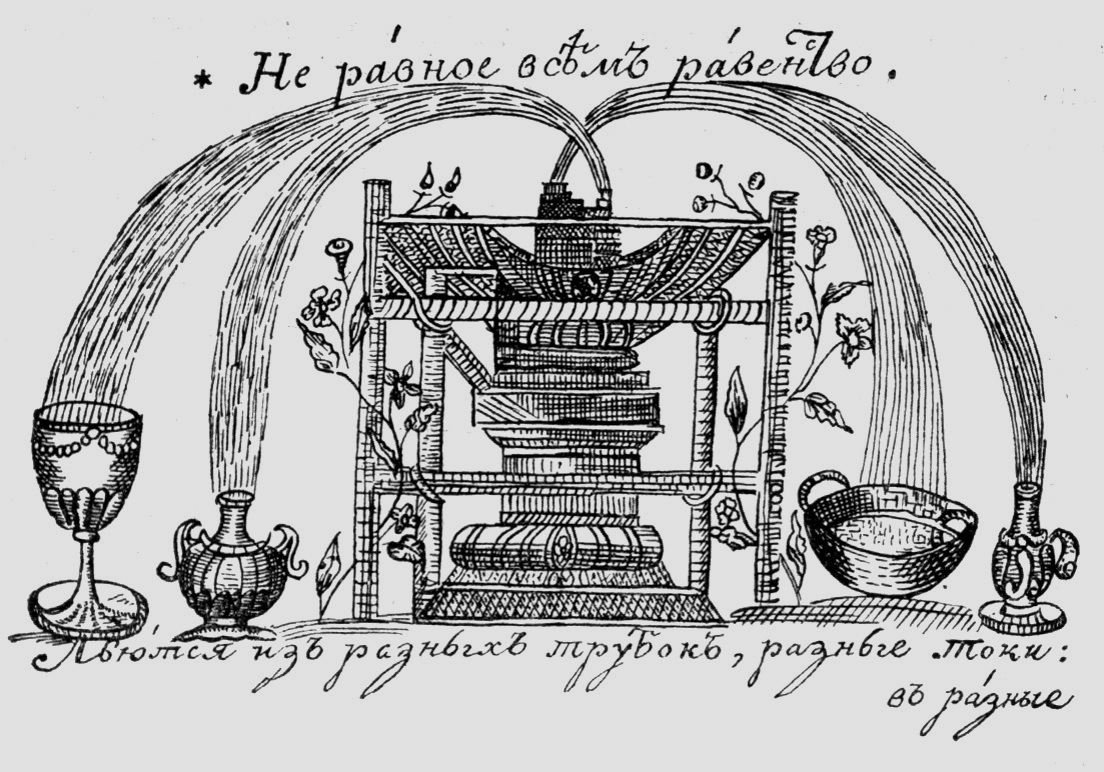 * Не ра́вное всѣмъ ра́венство.
Лью́тся изъ разныхъ трубокъ, разные токи:
въ ра́зные